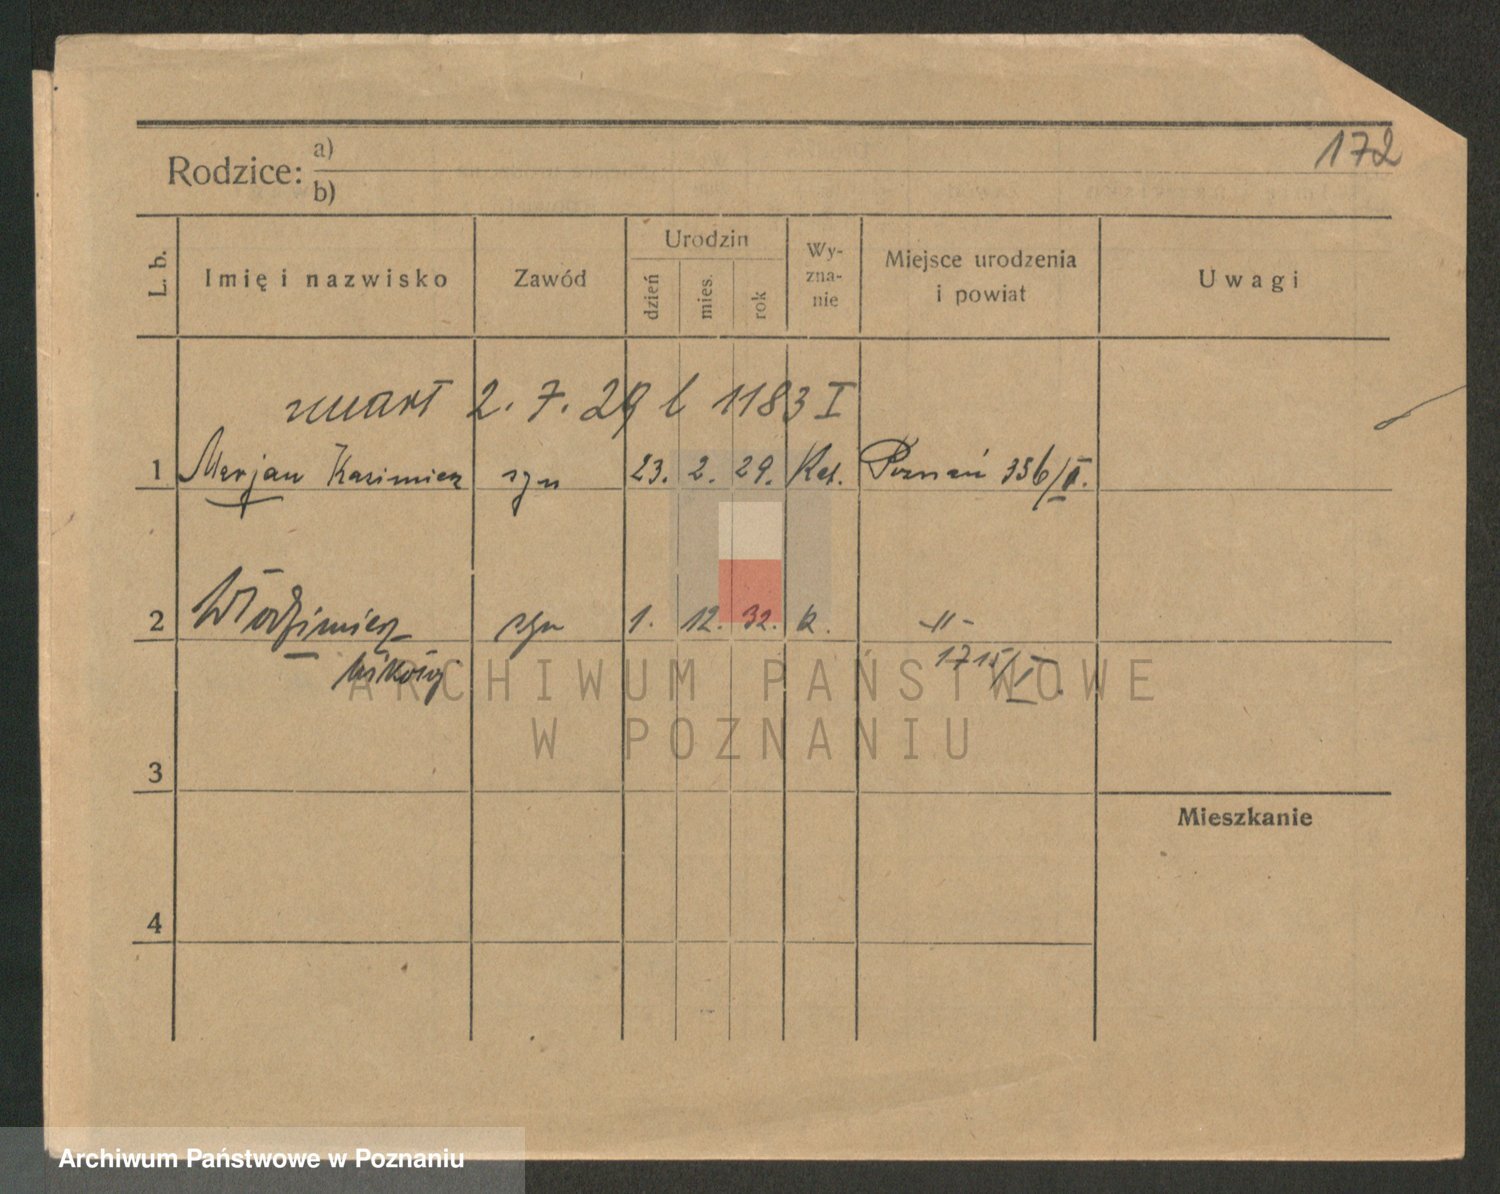 172
Rodzice: a)
b)
L. b. Imię i nazwisko Zawód Urodzin dzień mies. rok Wy-zna-nie Miejsce urodzenia i powiat Uwagi
zmarł 2. 7. 29 l 1183 I
1 Marjan Kazimierz syn 23. 2. 29. Kat. Poznań 336/II.
2 Włodzimierz syn 1. 12. 32. k. -"-
1715/I.
ARCHIWUM PAŃSTWOWE
W POZNANIU
3
Mieszkanie
4
Archiwum Państwowe w Poznaniu